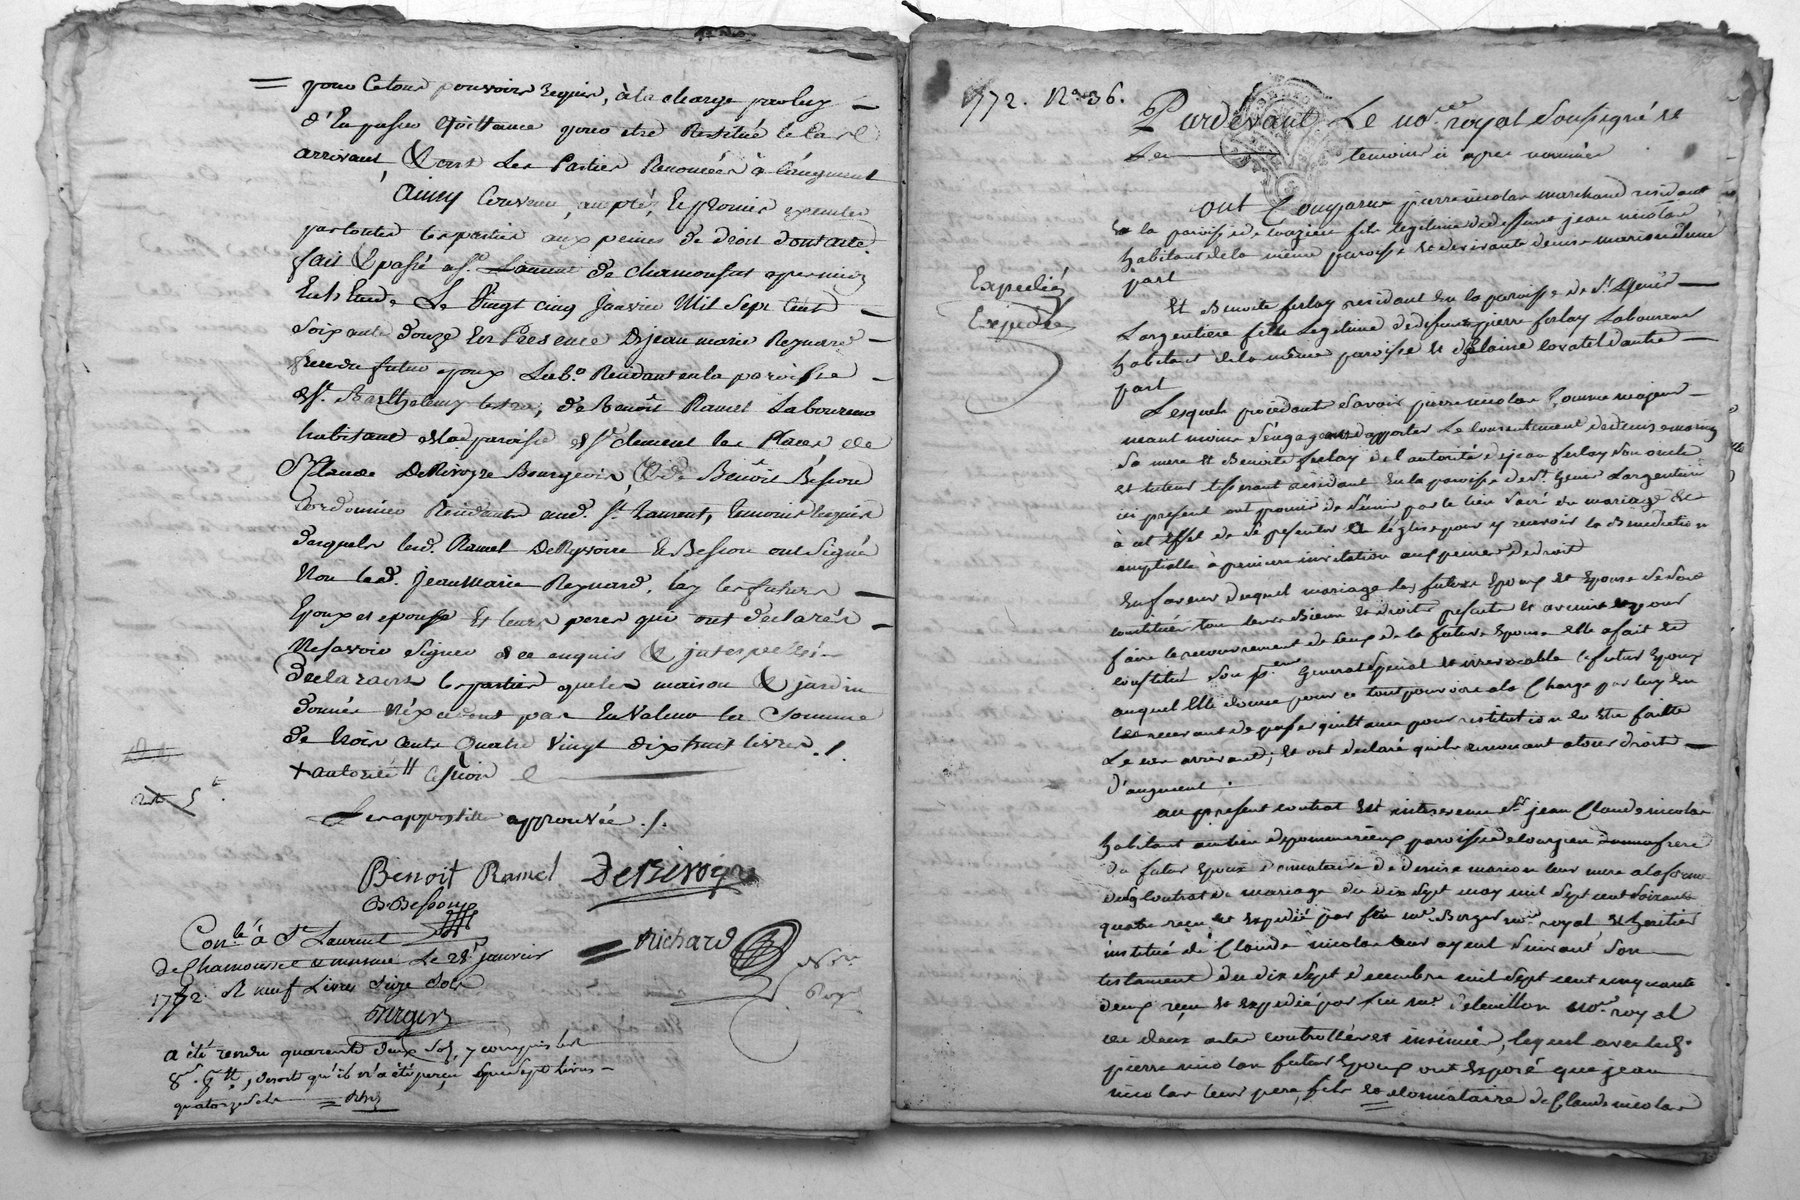 pour ce tous pouvoirs requis, à la charge par luy
d'En passer quittance pour etre Restitué le Cas
arrivant, & ont les Parties Renoncées à l'augment
Ainsy Convenu, accepté, & promis executer
par toutes les parties aux peines de droit dont acte
fait & passé a St. Laurent de chamousset apres midy
En l'Etude Le Vingt cinq Janvier Mil Sept Cent
Soixante Douze En Presence De jean marie Reynard
du futur epoux Residant en la paroisse
de St. Barthelemy lestra, de Benoît Ramel Laboureur
habitant de la paroisse de St clement les Places, de
Sr Claude DeRivoyre Bourgeois, & de Benoît Besson
Cordonnier Residants aud. St Laurent, temoins requis
desquels lesd. Ramel DeRyvoire & Besson ont Signé
Non led. Jean Marie Reynard, les futurs
Epoux et epouse Et leurs peres qui ont declarés
Ne savoir Signer de ce enquis & interpellés
Declarant les parties que les maison & jardin
donnés N'éxcedent pas En Valeur la Somme
de trois Cents Quatre Vingt dix huit livres ./.
+ autorité
Les apostilles approuvée ./.
Benoit Ramel DeRivoyre
B Besson
Richard
Nore
Royal
Conlé. à St Laurent
De Chamousset le 28e janvier
1772. R neuf Livres Seize Sols
Berger
a été rendu quarente deux sols, y compris les
8s. , desorte qu'il n'a été perçu que sept livres
quatorze sols
1772. No. 36.
Expedié
Expedié
Pardevant Le nore. royal soussigné et
Les temoins ci apres nommés
ont Comparu pierre nicolas marchand residant
en la paroisse de fils legitime de deffunt jean nicolas
habitant de la même paroisse et de vivante denise marion d'une
part
Et Benoite ferlay residant En la paroisse de St Genis
L'argentiere fille Legitime de deffunt pierre ferlay Laboureur
habitant de la même paroisse et de d'autre
part
Lesquels procédants savoir pierre nicolas Comme majeur
neant moins s'engageant d'apporter Le Consentement de denise marion
Sa mere et Benoite ferlay de l'autorité de jean ferlay son oncle
et tuteur tisserant residant En la paroisse de St. Genis L'argentiere
ici present ont promis de s'unir par le lien sacré du mariage &
à cet Effet de se presenter à l'église pour y recevoir la Benediction
nuptialle à premiere invitation aux peines de droit
En faveur duquel mariage les futurs Epoux et Epouse se sont
constitués tous leurs Biens et droits presents et avenirs et pour
faire le recouvrement de Ceux de la future Epouse Elle a fait et
constitué son pr. General Special et irrevocable le futur Epoux
auquel Elle donne pour ce tout pouvoir a la Charge par luy En
les recevant de passer quittance pour restitution En Etre faitte
Le cas arrivant, et ont declaré qu'ils renoncent a tous droits
D'augment.
au present contrat Est intervenu Sr jean Claude nicolas
habitant au lieu de pommerieux paroisse de frere
du futur Epoux donnataire de denise marion leur mere a la forme
de son Contrat de mariage du dix sept may mil sept cent soixante
quatre reçu et expedié par feu me. Berger nore royal, et heritier
institué de Claude nicolas leur ayeul suivant son
testament du dix sept decembre mil sept cent cinquante
deux reçu et expedié par feu me. nore. royal
ces deux actes controllés et insinués, lequel avec led.
pierre nicolas futur Epoux ont Exposé que jean
nicolas leur pere, fils et donnataire de Claude nicolas